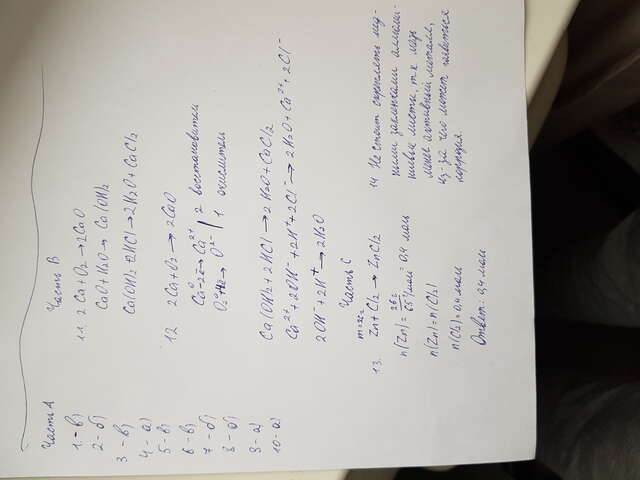 Часть А
1 - в)
2 - б)
3 - в)
4 - а)
5 - в)
6 - в)
7 - б)
8 - б)
9 - а)
10 - а)
Часть В
11. 2Ca + O₂ → 2CaO
CaO + H₂O → Ca(OH)₂
Ca(OH)₂ + 2HCl → 2H₂O + CaCl₂
12. 2Ca + O₂ → 2CaO
Ca⁰ - 2ē → Ca²⁺ | 2 восстановитель
O₂⁰ + 4ē → O²⁻ | 1 окислитель
Ca(OH)₂ + 2HCl → 2H₂O + CaCl₂
Ca²⁺ + 2OH⁻ + 2H⁺ + 2Cl⁻ → 2H₂O + Ca²⁺ + 2Cl⁻
2OH⁻ + 2H⁺ → 2H₂O
Часть С
m=26г
13. Zn + Cl₂ → ZnCl₂
n(Zn) = 26г / 65 г/моль = 0,4 моль
n(Zn) = n(Cl₂)
n(Cl₂) = 0,4 моль
Ответ: 0,4 моль
14 Не стоит скреплять мед-
ными заклепками алюми-
ниевые листы, т.к медь
менее активный металл,
из-за чего может появиться
коррозия.